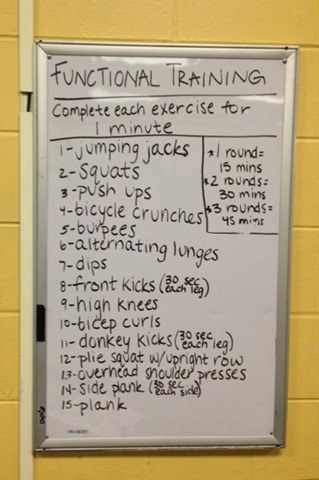 FUNCTIONAL TRAINING
Complete each exercise for
1 minute
1-jumping jacks
2-squats
3-push ups
4-bicycle crunches
5-burpees
6-alternating lunges
7-dips
8-front kicks (30 sec each leg)
9-high knees
10-bicep curls
11-donkey kicks (30 sec each leg)
12-plie squat w/upright row
13-overhead shoulder presses
14-side plank (30 sec each side)
15-plank
*1 round=
15 mins
*2 rounds=
30 mins
*3 rounds=
45 mins